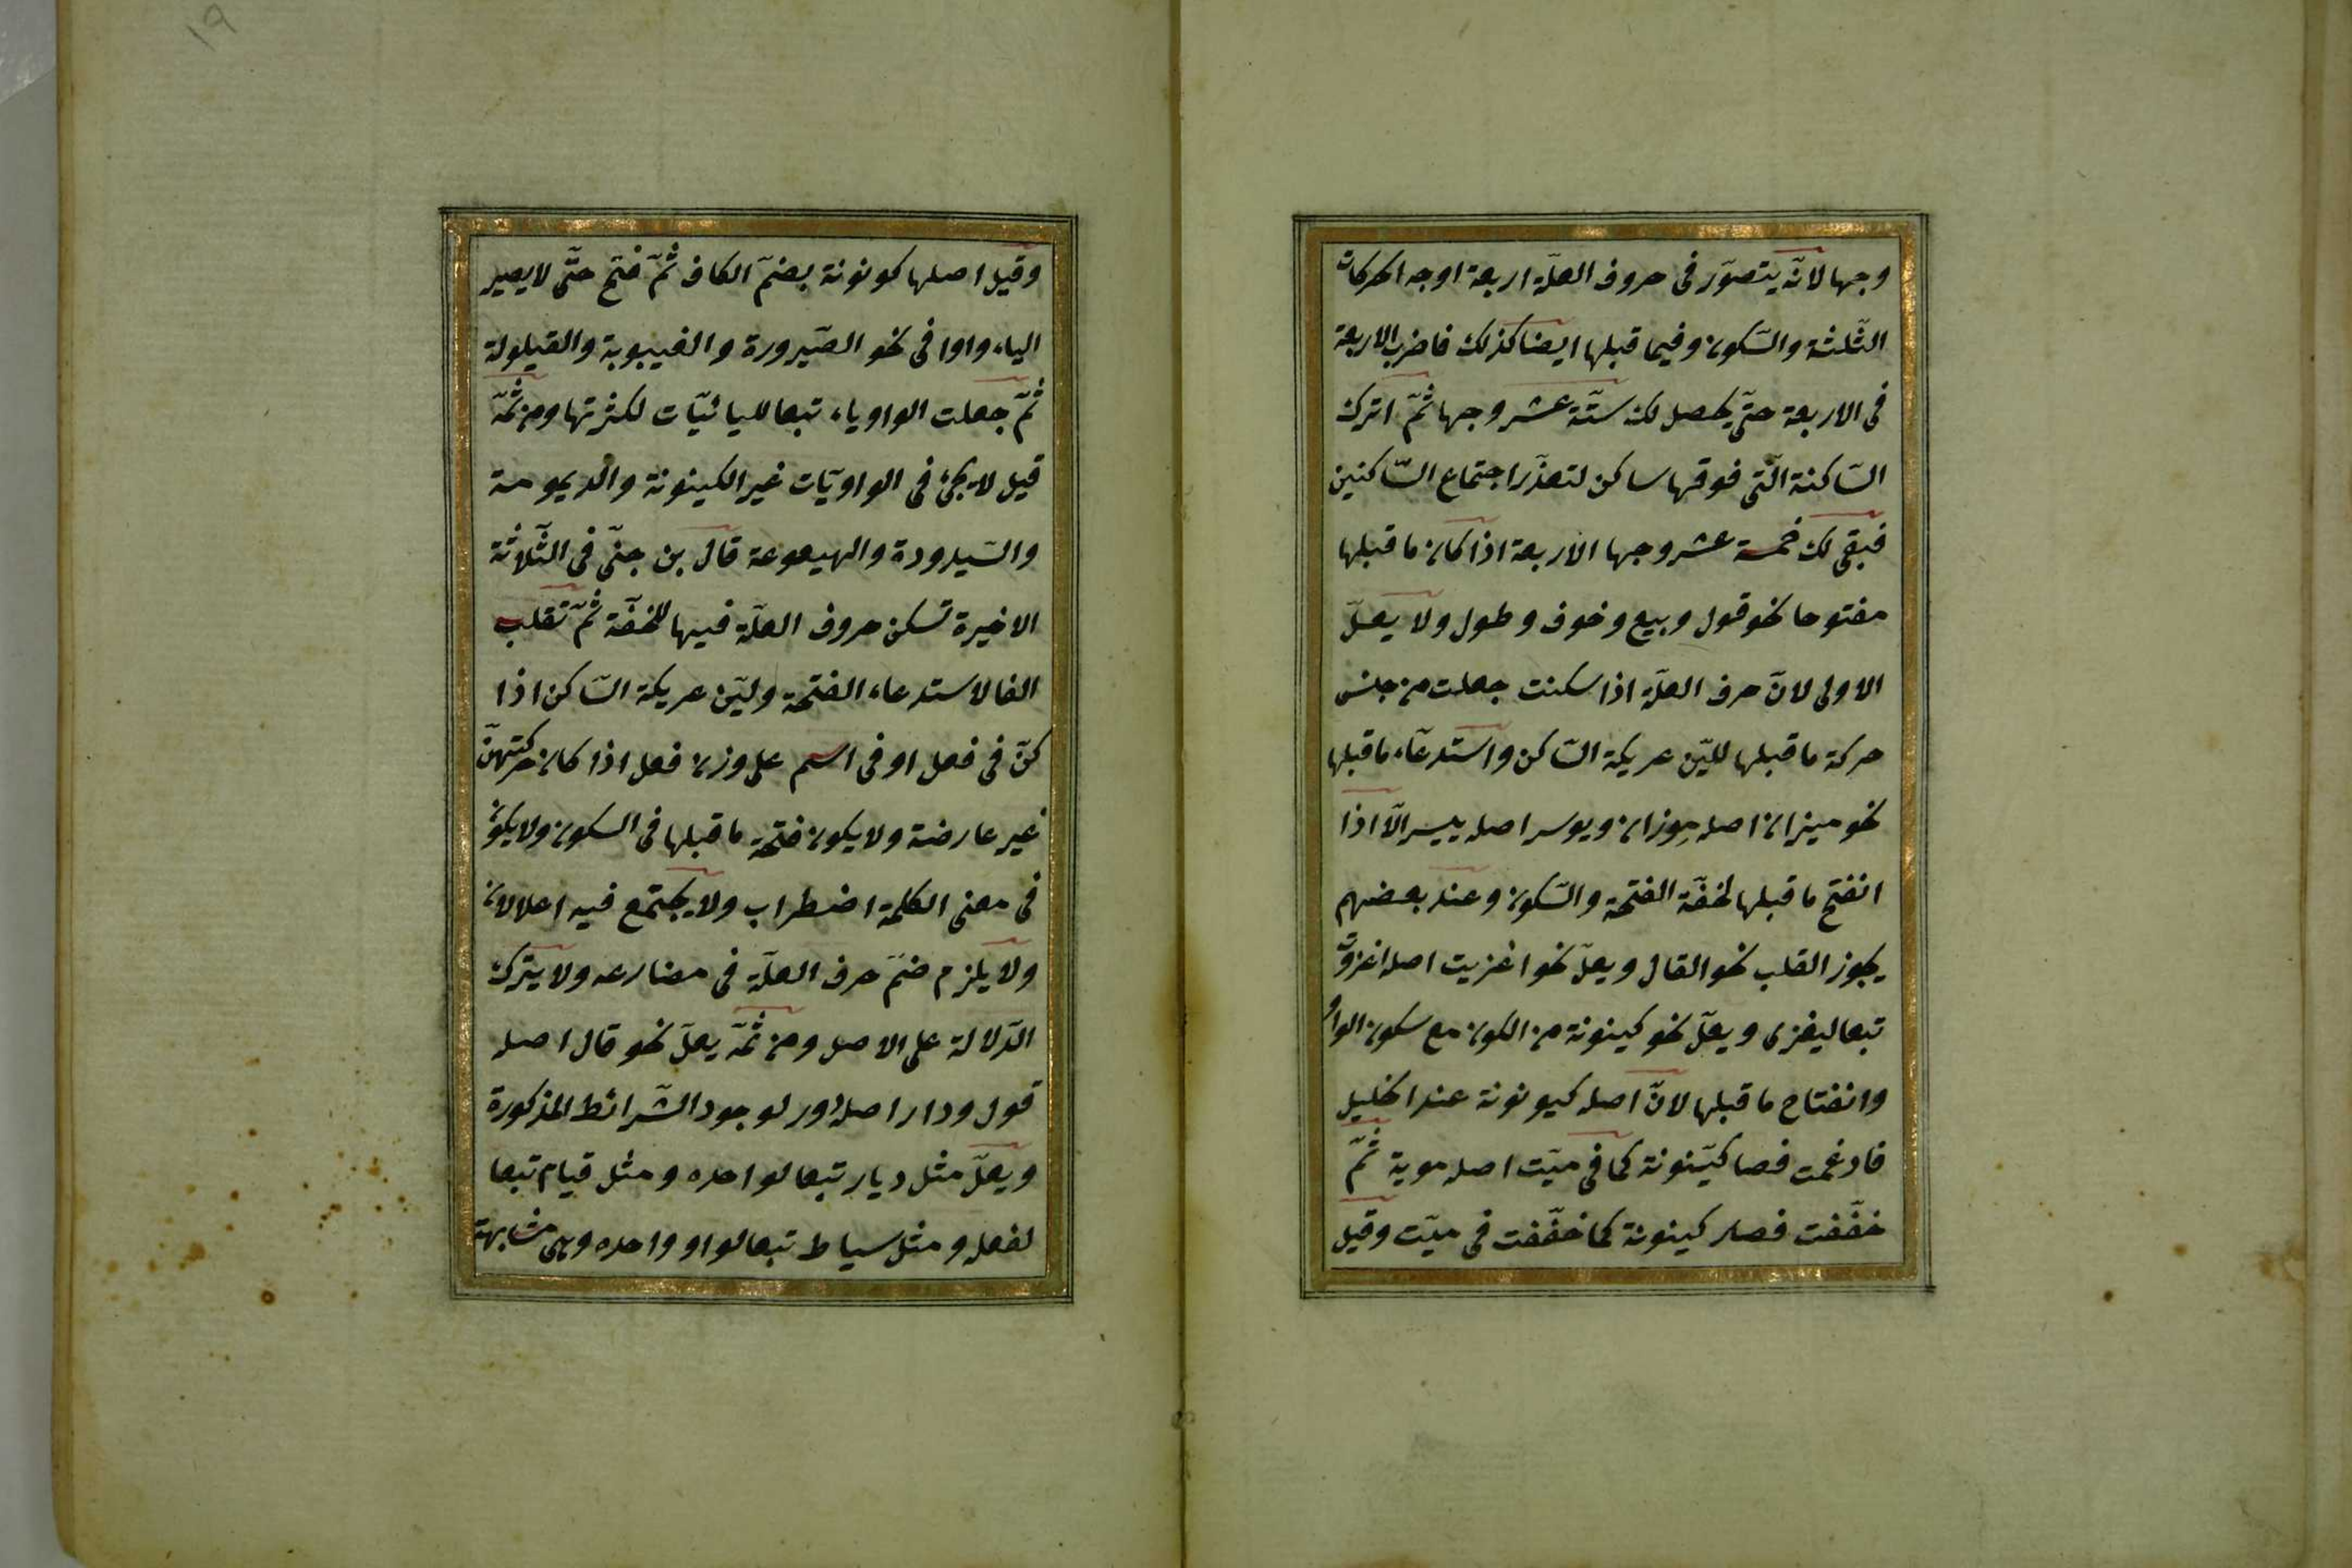 وجها لانّه يتصوّر فى حروف العلّة اربعة اوجه الحركات
الثّلثة والسّكون وفيما قبلها ايضا كذلك فاضرب الاربعة
فى الاربعة حتّى يحصل لك ستّة عشر وجها ثمّ اترك
السّاكنة الّتى فوقها ساكن لتعذّر اجتماع السّاكنين
فبقى لك خمسة عشر وجها الاربعة اذا كان ما قبلها
مفتوحا نحو قول وبيع وخوف وطول ولا يعلّ
الاولى لانّ حرف العلّة اذا سكنت جعلت من جنس
حركة ما قبلها لليّن عريكة السّاكن واستدعاء ما قبلها
نحو ميزان اصله مِوزان ويوسر اصله ييسر الّا اذا
انفتح ما قبلها لخفّة الفتحة والسّكون وعند بعضهم
يجوز القلب نحو القال ويعلّ نحو اغزيت اصله اغزوت
تبعا ليغزى ويعلّ نحو كينونة من الكون مع سكون الواو
وانفتاح ما قبلها لانّ اصله كيونونة عند الخليل
فادغمت فصا كيّنونة كما فى ميّت اصله موية ثمّ
خفّفت فصار كينونة كما خفّفت فى ميّت وقيل
١٩
وقيل اصلها كونونة بضمّ الكاف ثمّ فتح حتّى لا يصير
الياء واوا فى نحو الصّيرورة والغيبوبة والقيلولة
ثمّ جعلت الواو ياء تبعا لليائيّات لكثرتها ومن ثمّة
قيل لا يجئ فى الواويّات غير الكينونة والديمومة
والسّيدودة والهيعوعة قال بن جنّى فى الثّلاثة
الاخيرة تسكن حروف العلّة فيها للخفّة ثمّ تقلب
الفا لاستدعاء الفتحة وليّن عريكة السّاكن اذا
كنّ فى فعل او فى اسم على وزن فعل اذا كان حركتهنّ
غير عارضة ولا يكون فتحة ما قبلها فى السكون ولا يكون
فى معنى الكلمة اضطراب ولا يجتمع فيه اعلالان
ولا يلزم ضمّ حرف العلّة فى مضارعه ولا يترك
الدّلالة على الاصل ومن ثمّة يعلّ نحو قال اصله
قول ودار اصله دور لوجود الشّرائط المذكورة
ويعلّ مثل ديار تبعا لواحده ومثل قيام تبعا
لفعله ومثل سياط تبعا لواو واحده وهى مشابهة